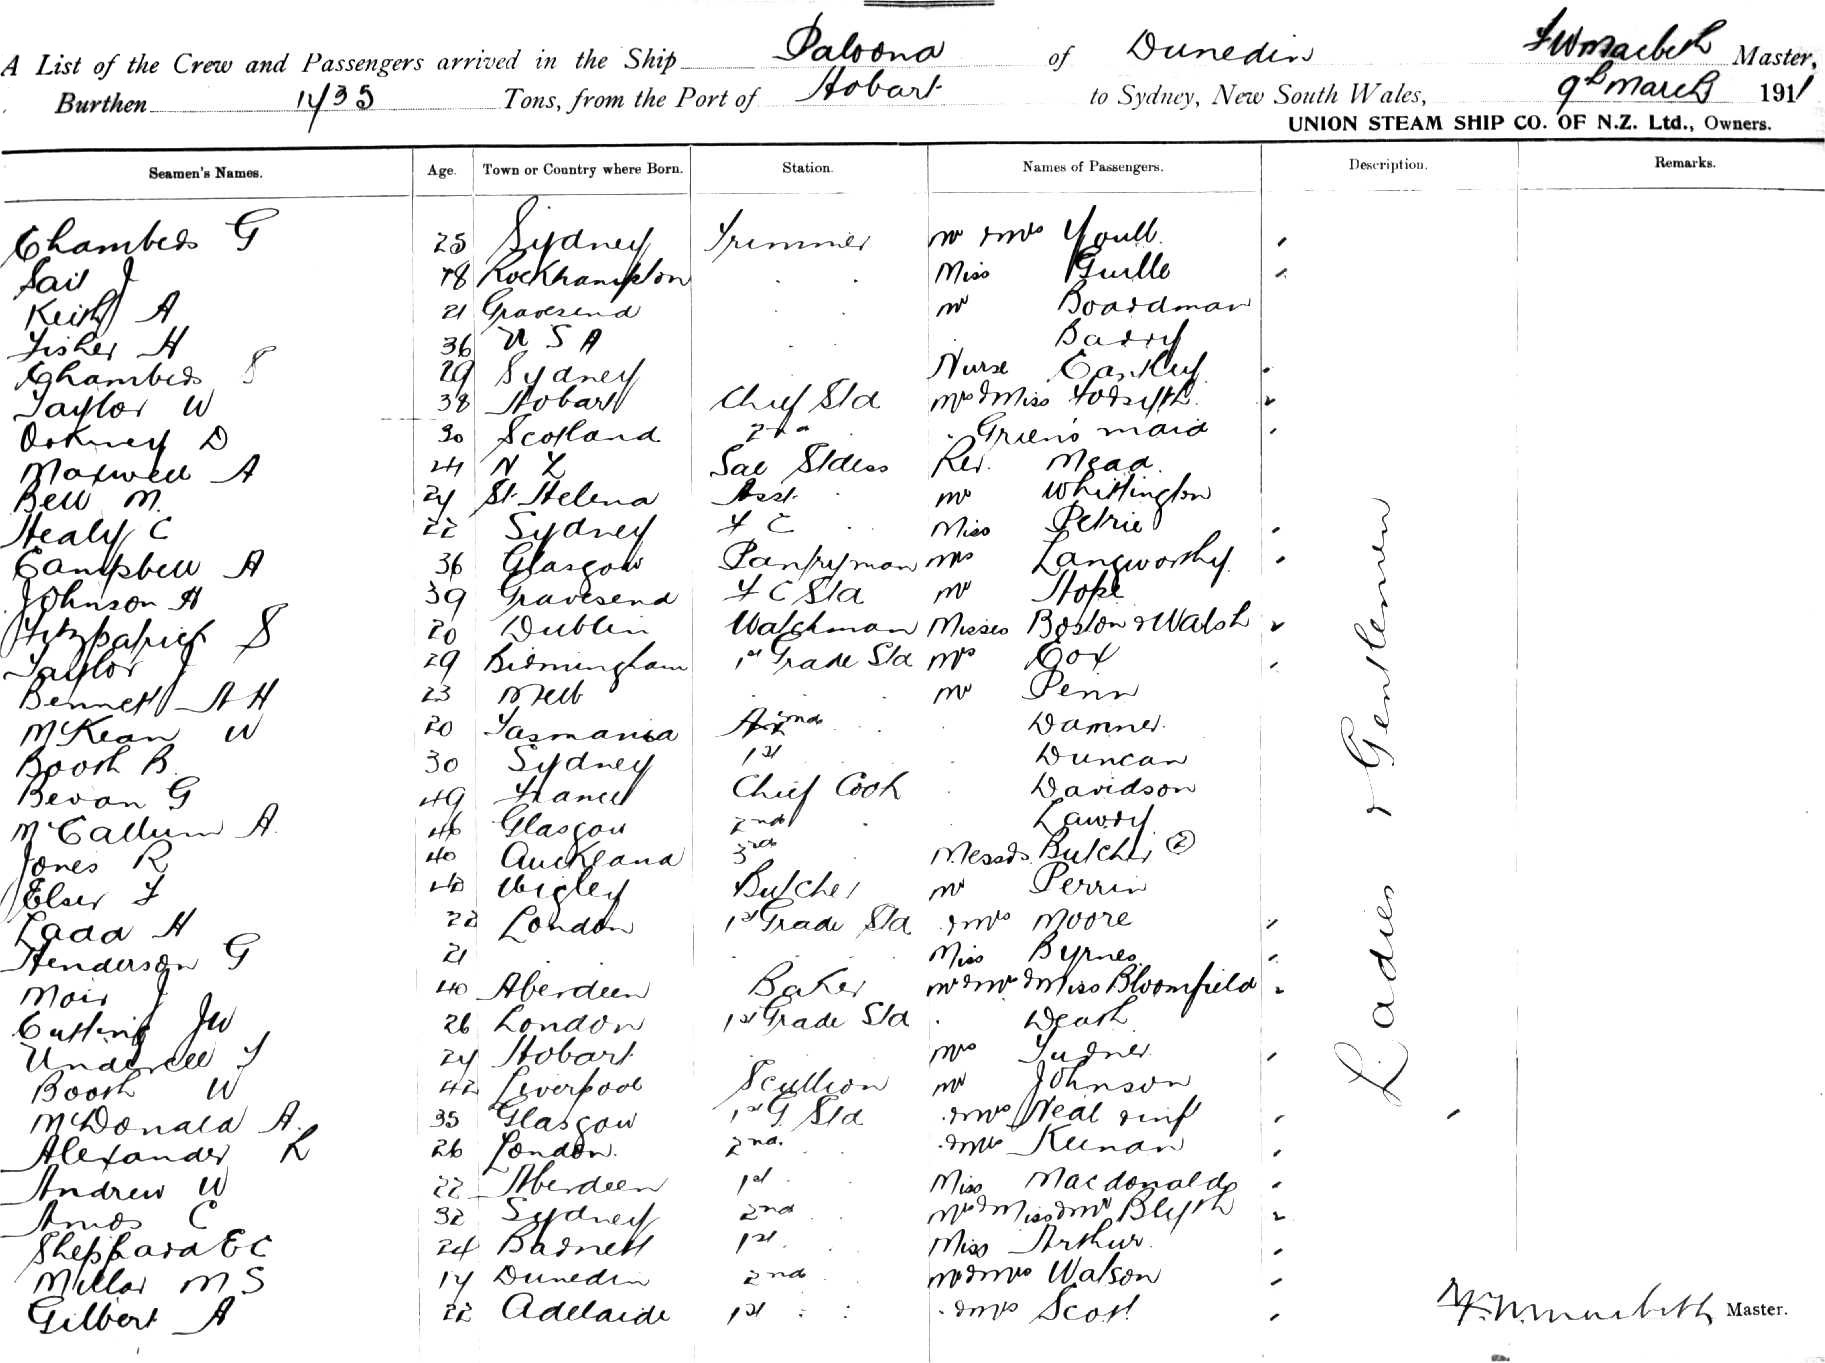 A List of the Crew and Passengers arrived in the Ship Paloona of Dunedin F W Macbeth Master,
Burthen Tons, from the Port of Hobart to Sydney, New South Wales, 9th March 1911
UNION STEAM SHIP CO. OF N.Z. Ltd., Owners.
Seamen's Names. Age. Town or Country where Born. Station. Names of Passengers. Description. Remarks.
Chambers G 25 Sydney Trimmer Mr & Mrs Youll
J 48 Rockhampton Miss Guille
Keith A 21 Gravesend Mr Boardman
Fisher H 36 U S A Barry
Chambers S 29 Sydney Nurse
Taylor W 38 Hobart Chief Std Mrs & Miss Forsyth
Orkney D 30 Scotland 2nd maid
Maxwell A 24 N Z Sal Stdess Rev. Mead
Bell M. 27 St. Helena Asst. Mr Whittington
Healy C 22 Sydney F C Miss Petrie
Campbell A 36 Glasgow Pantryman Mrs Langworthy
Johnson H 39 Gravesend F C Std Mr Hope
Fitzpatrick S 20 Dublin Watchman Misses Boston & Walsh
Taylor J 29 Birmingham 1st Grade Std Mrs Cox
Bennett A H 23 Melb Mr Penn
McKean W 20 Tasmania 2nd Damner
Booth B 30 Sydney 1st Duncan
Bevan G 49 France Chief Cook Davidson
McCallum A. 46 Glasgow 2nd Lawry
Jones R 40 Auckland 3rd Messrs Butcher (2)
F 40 Wigley Butcher Mr Perrin
Ladd H 22 London 1st Grade Std & Mrs Moore
Henderson G 21 Miss Byrnes
Moir J 40 Aberdeen Baker Mr & Mrs & Miss Bloomfield
Cutting J W 26 London 1st Grade Std
27 Hobart Mrs Turner
Booth W 42 Liverpool Scullion Mr Johnson
McDonald A. 35 Glasgow 1st G. Std & Mrs Neal & inft
Alexander L 26 London. 2nd. & Mrs Keenan
Andrew W 22 Aberdeen 1st Miss Macdonald
Amos C 32 Sydney 2nd Mrs & Miss & Mr Blyth
Sheppard E C 24 Barnett 1st Miss Arthur
Millar M S 17 Dunedin 2nd Mr & Mrs Watson
Gilbert A 22 Adelaide 1st & Mrs Scott
Ladies & Gentlemen
F. W. Macbeth Master.